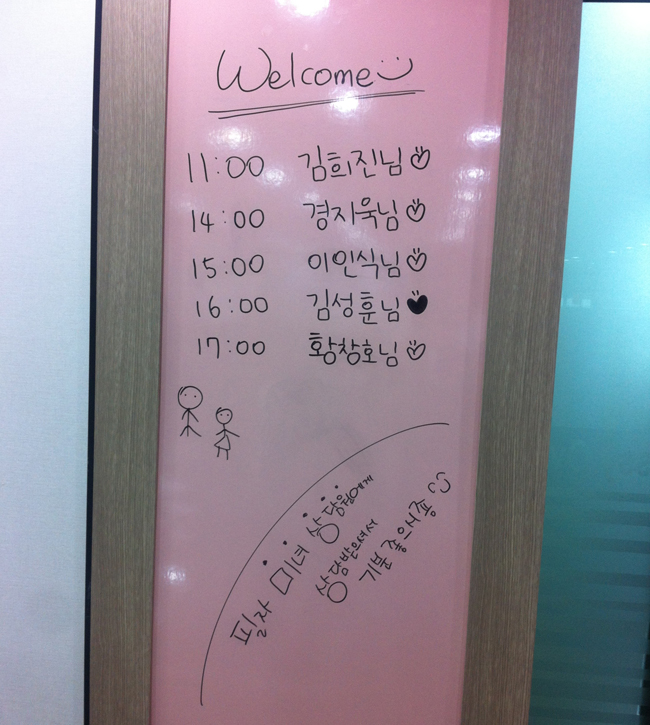 Welcome
11:00 김희진님
14:00 경지욱님
15:00 이인식님
16:00 김성훈님
17:00 황창호님
필라 미녀 상담원에게
상담받으셔서
기분 좋으시죵